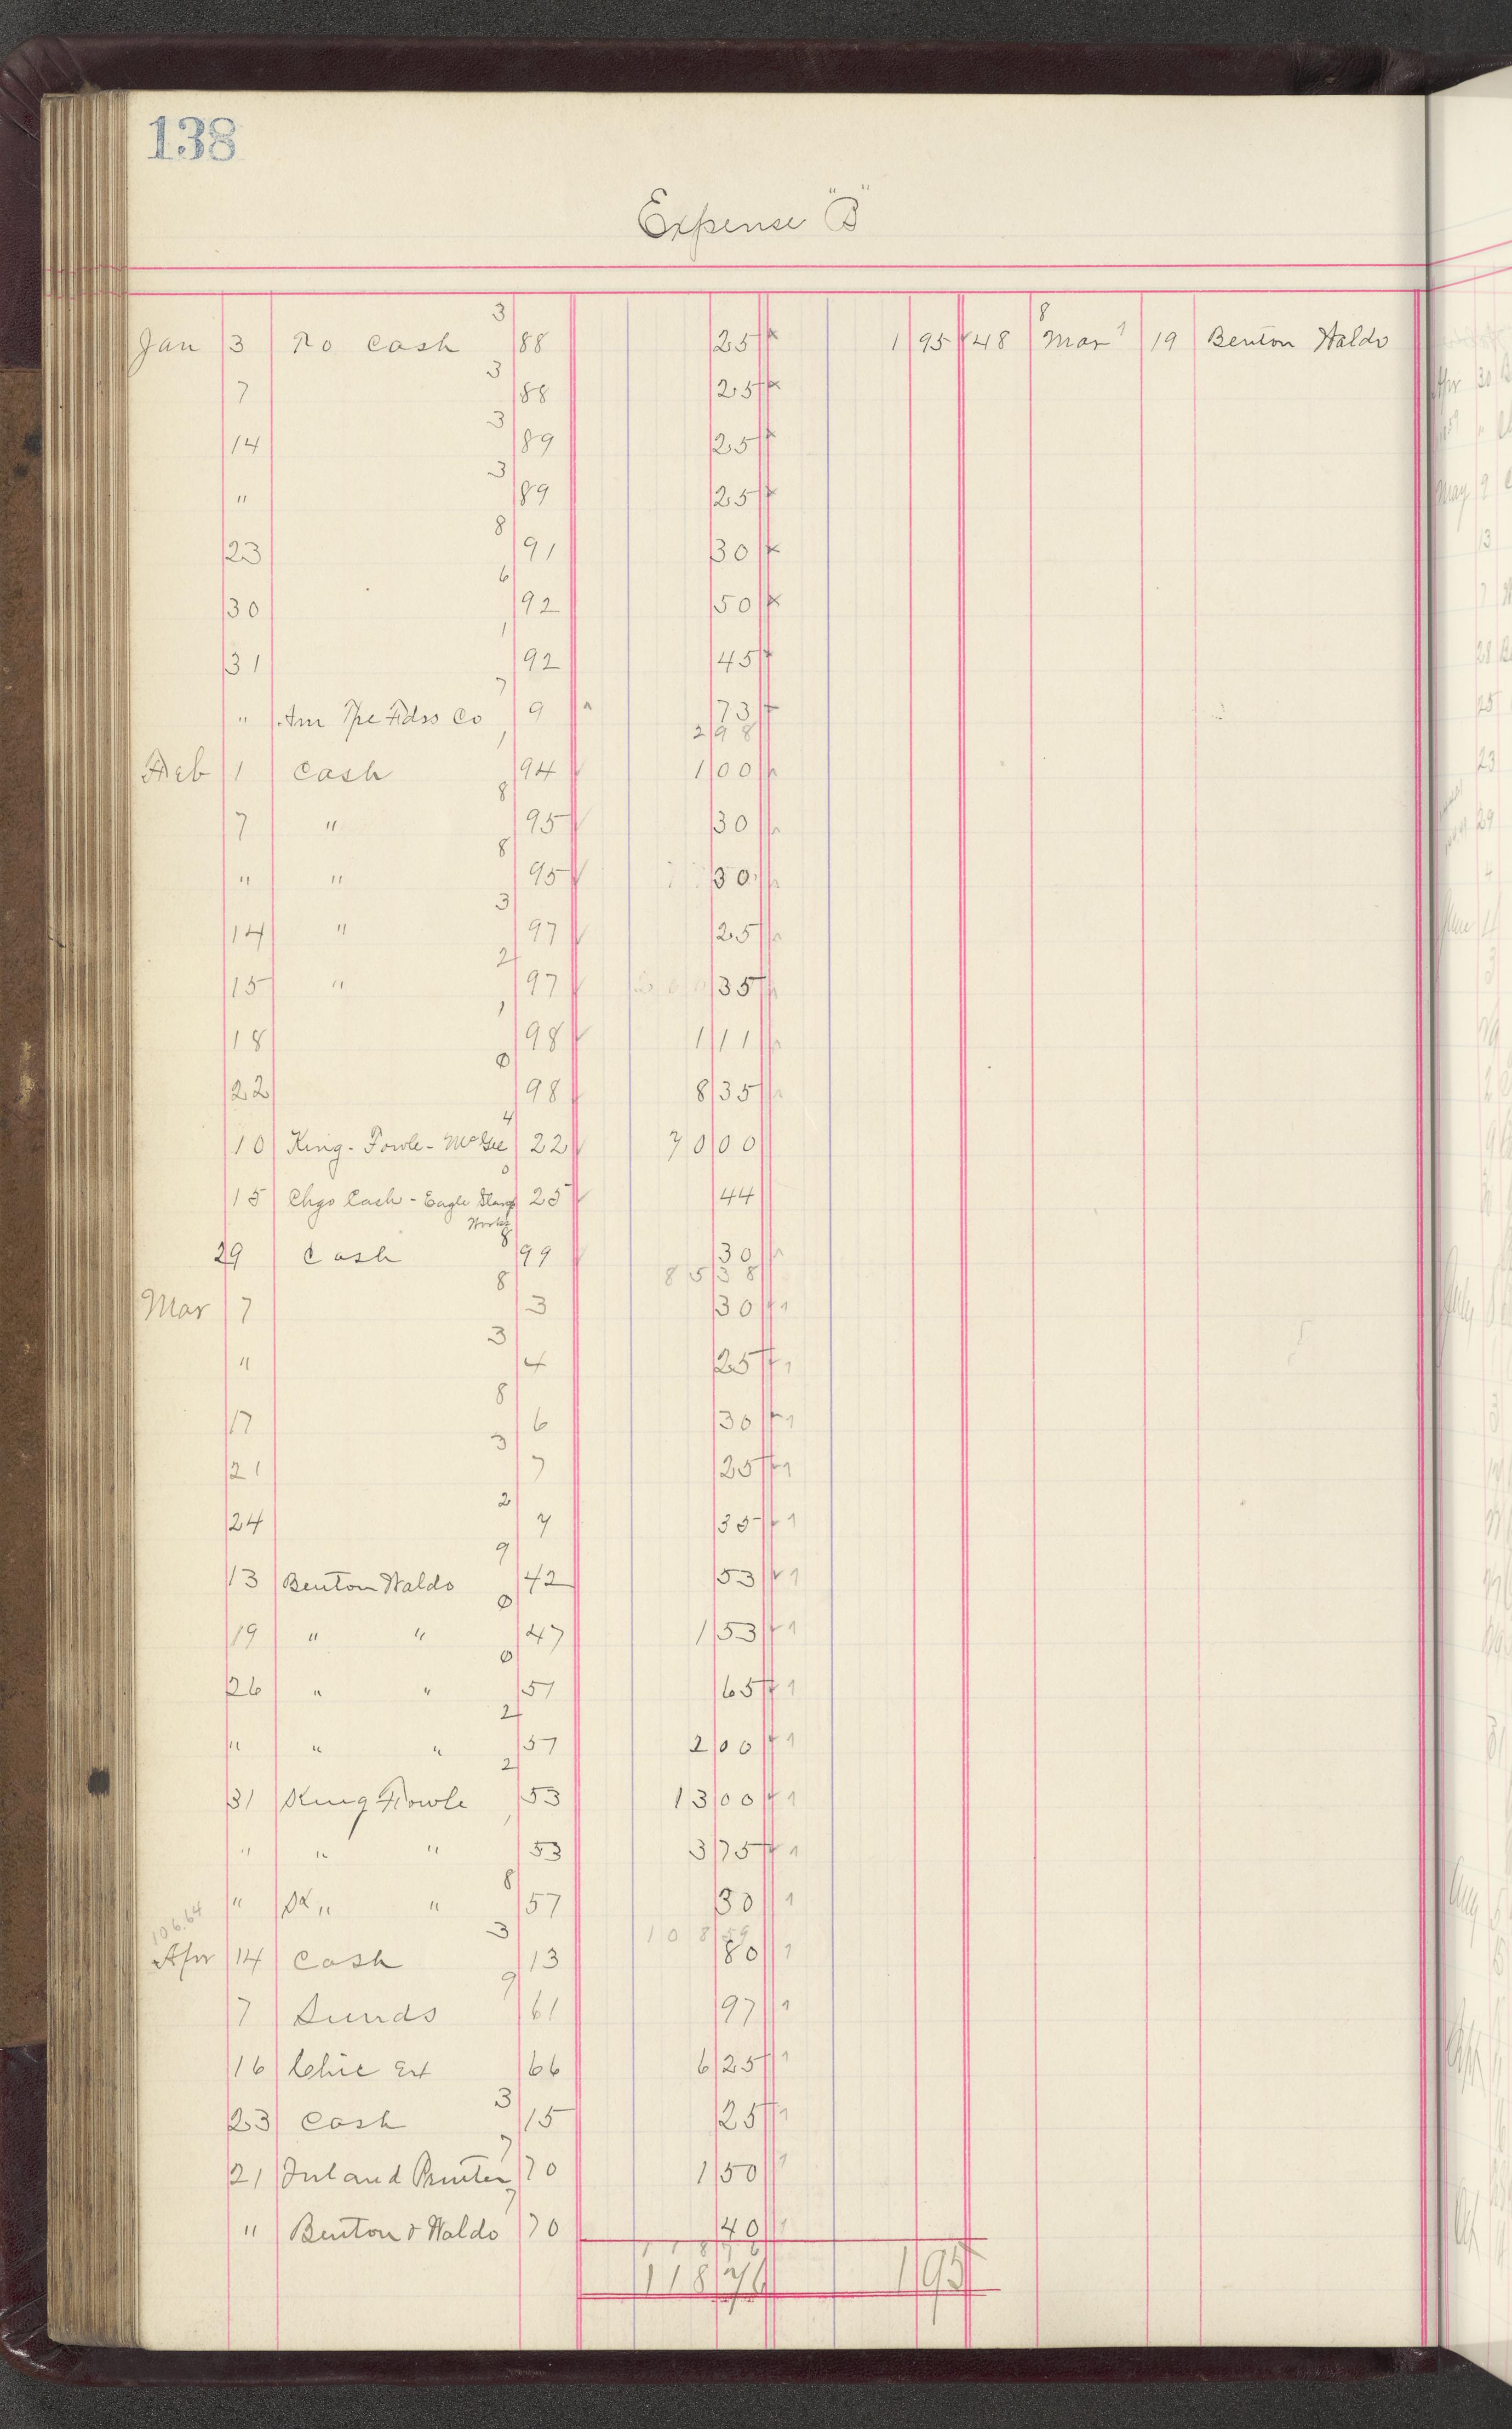 138
Expense "B"
Jan 3 To Cash 3 88 25 1 95 48 8 Mar 19 Benton Waldo
7 3 88 25
14 3 89 25
" 3 89 25
23 8 91 30
30 6 92 50
31 1 92 45
" Am Type Fdrs Co 7 9 73
2 98
Feb 1 Cash 1 94 1 00
7 " 8 95 30
" " 8 95 30
14 " 3 97 25
15 " 2 97 35
18 1 98 1 11
22 0 98 8 35
10 King-Fowle-McGee 4 22 70 00
15 Chgo Cash - Eagle Stamp 0 25 44
Works
29 Cash 8 99 30
85 38
Mar 7 8 3 30
" 3 4 25
17 8 6 30
21 3 7 25
24 2 7 35
13 Benton Waldo 9 42 53
19 " " 0 47 1 53
26 " " 0 51 65
" " " 2 51 2 00
31 King Fowle 2 53 13 00
" " " 1 53 3 75
" " " 8 57 30
106.64
108 59
Apr 14 Cash 3 13 80
7 Sunds 9 61 97
16 Chic Ex 66 6 25
23 Cash 3 15 25
21 Inland Printer 7 70 1 50
" Benton & Waldo 7 70 40
118 76
118 76 1 95